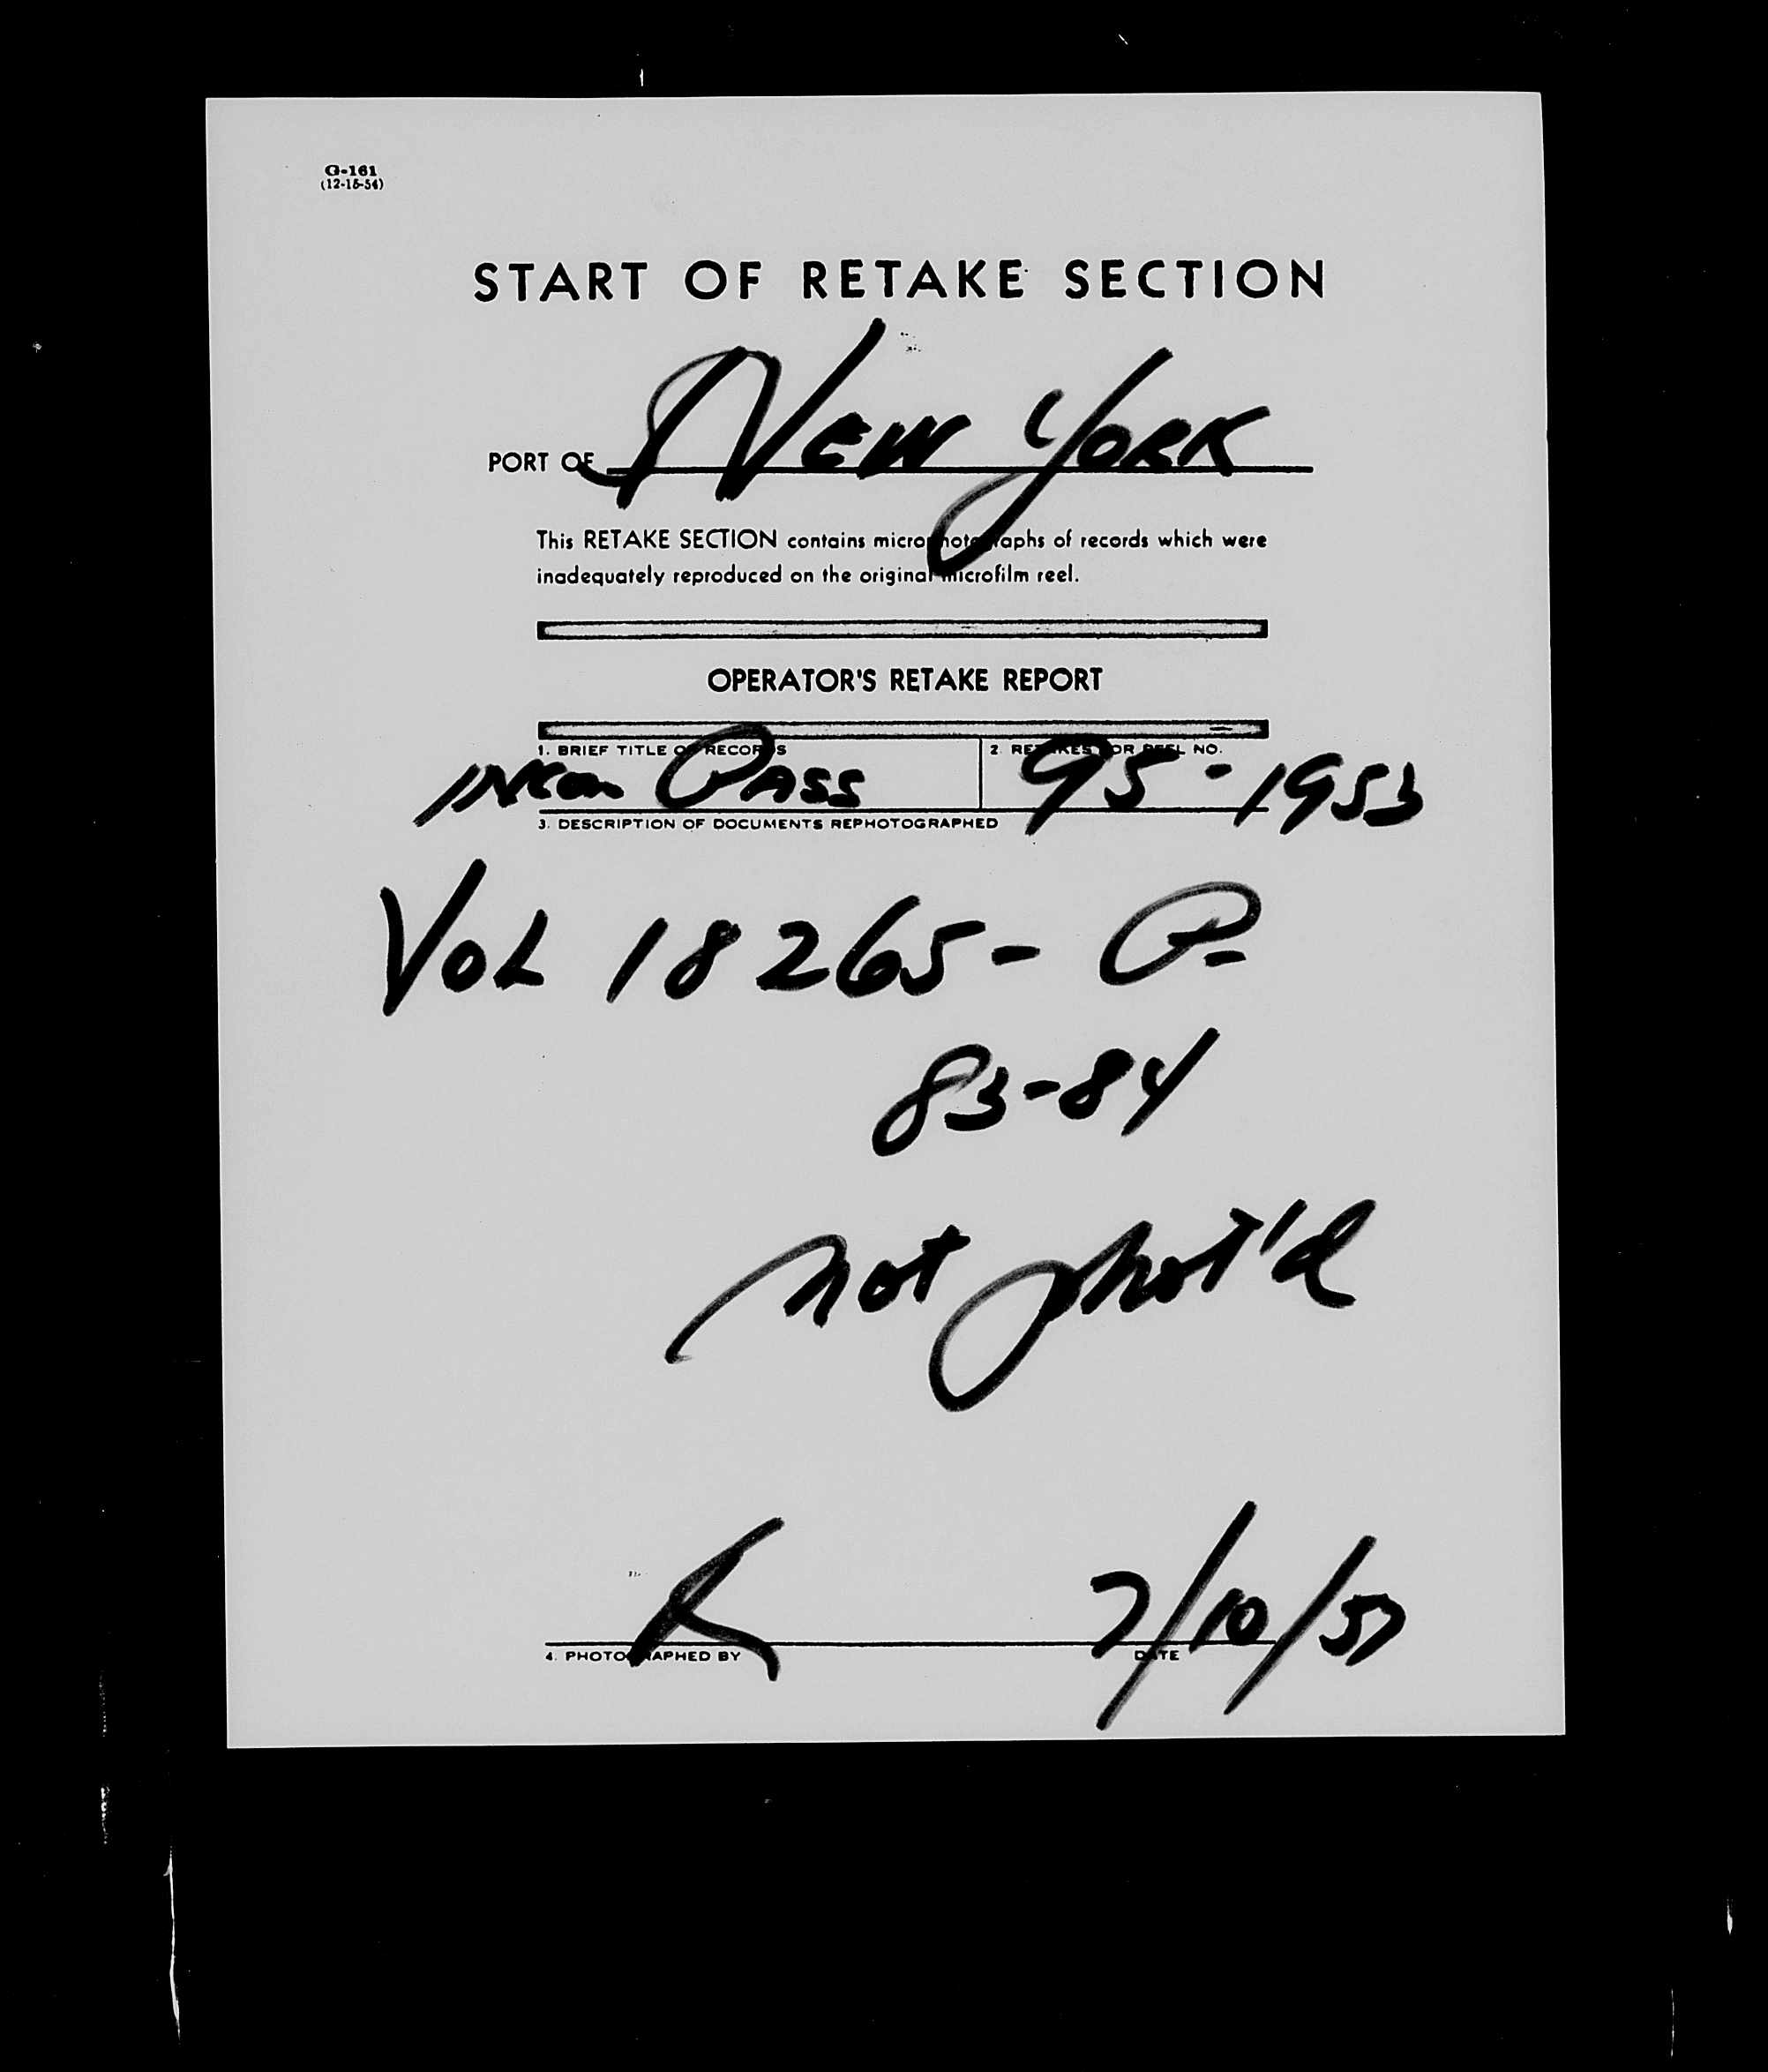 G-161
(12-15-54)
START OF RETAKE SECTION
PORT OF New York
This RETAKE SECTION contains microphotographs of records which were
inadequately reproduced on the original microfilm reel.
OPERATOR'S RETAKE REPORT
1. BRIEF TITLE OF RECORDS 2. RETAKES FOR REEL NO.
Incom Pass 95-1953
3. DESCRIPTION OF DOCUMENTS REPHOTOGRAPHED
Vol 18265- P-
83-84
not phot'd
K 7/10/57
4. PHOTOGRAPHED BY DATE